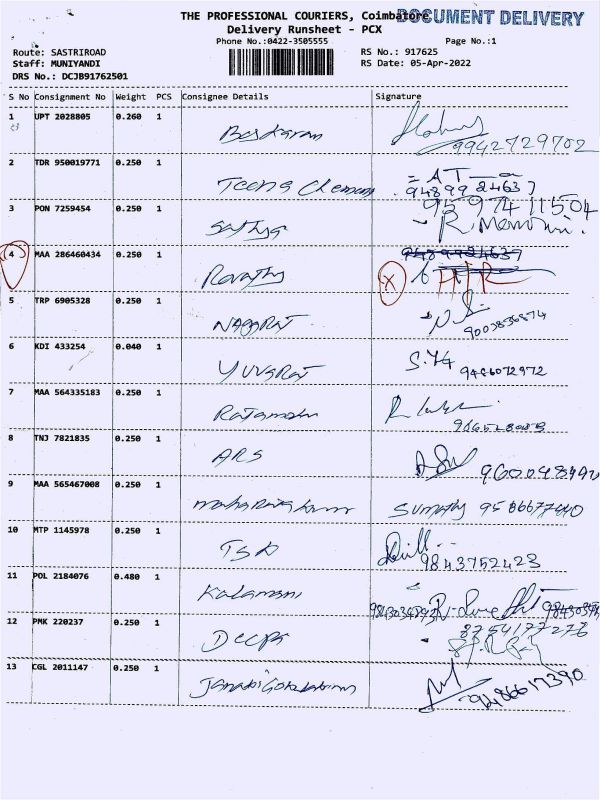 THE PROFESSIONAL COURIERS, Coimbatore
DOCUMENT DELIVERY
Delivery Runsheet - PCX
Phone No.:0422-3505555
Page No.:1
Route: SASTRIROAD
RS No.: 917625
Staff: MUNIYANDI
RS Date: 05-Apr-2022
DRS No.: DCJB91762501
S No Consignment No Weight PCS Consignee Details Signature
1 UPT 2028805 0.260 1 Baskaran 9942729702
2 TDR 950019771 0.250 1 Teena 9489924637
3 PON 7259454 0.250 1 Sathya 9597411504
4 MAA 286460434 0.250 1 Revathy 9489924637
5 TRP 6905328 0.250 1 NAGARAJ
6 KDI 433254 0.040 1 YUVARAJ 9486072972
7 MAA 564335183 0.250 1
8 TNJ 7821835 0.250 1 ARS
9 MAA 565467008 0.250 1 SUMATHY
10 MTP 1145978 0.250 1 9843752423
11 POL 2184076 0.480 1 Kalamani
12 PMK 220237 0.250 1 Deepa 8754177276
13 CGL 2011147 0.250 1 9486617390